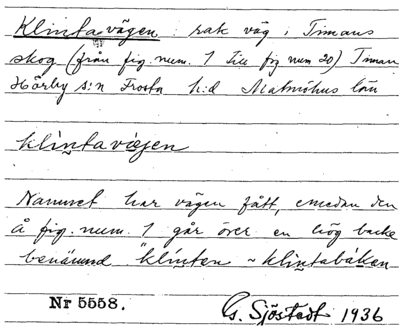 Klintavägen : rak väg i Timans
skog (från fig. num. 1 till fig num 20) Timan
Hörby s:n Frosta h:d Malmöhus län
klintavägen
Namnet har vägen fått, emedan den
å fig. num. 1 går över en hög backe
benämnd "klinten ~ klintabáken
Nr 5558.
G. Sjöstedt 1936